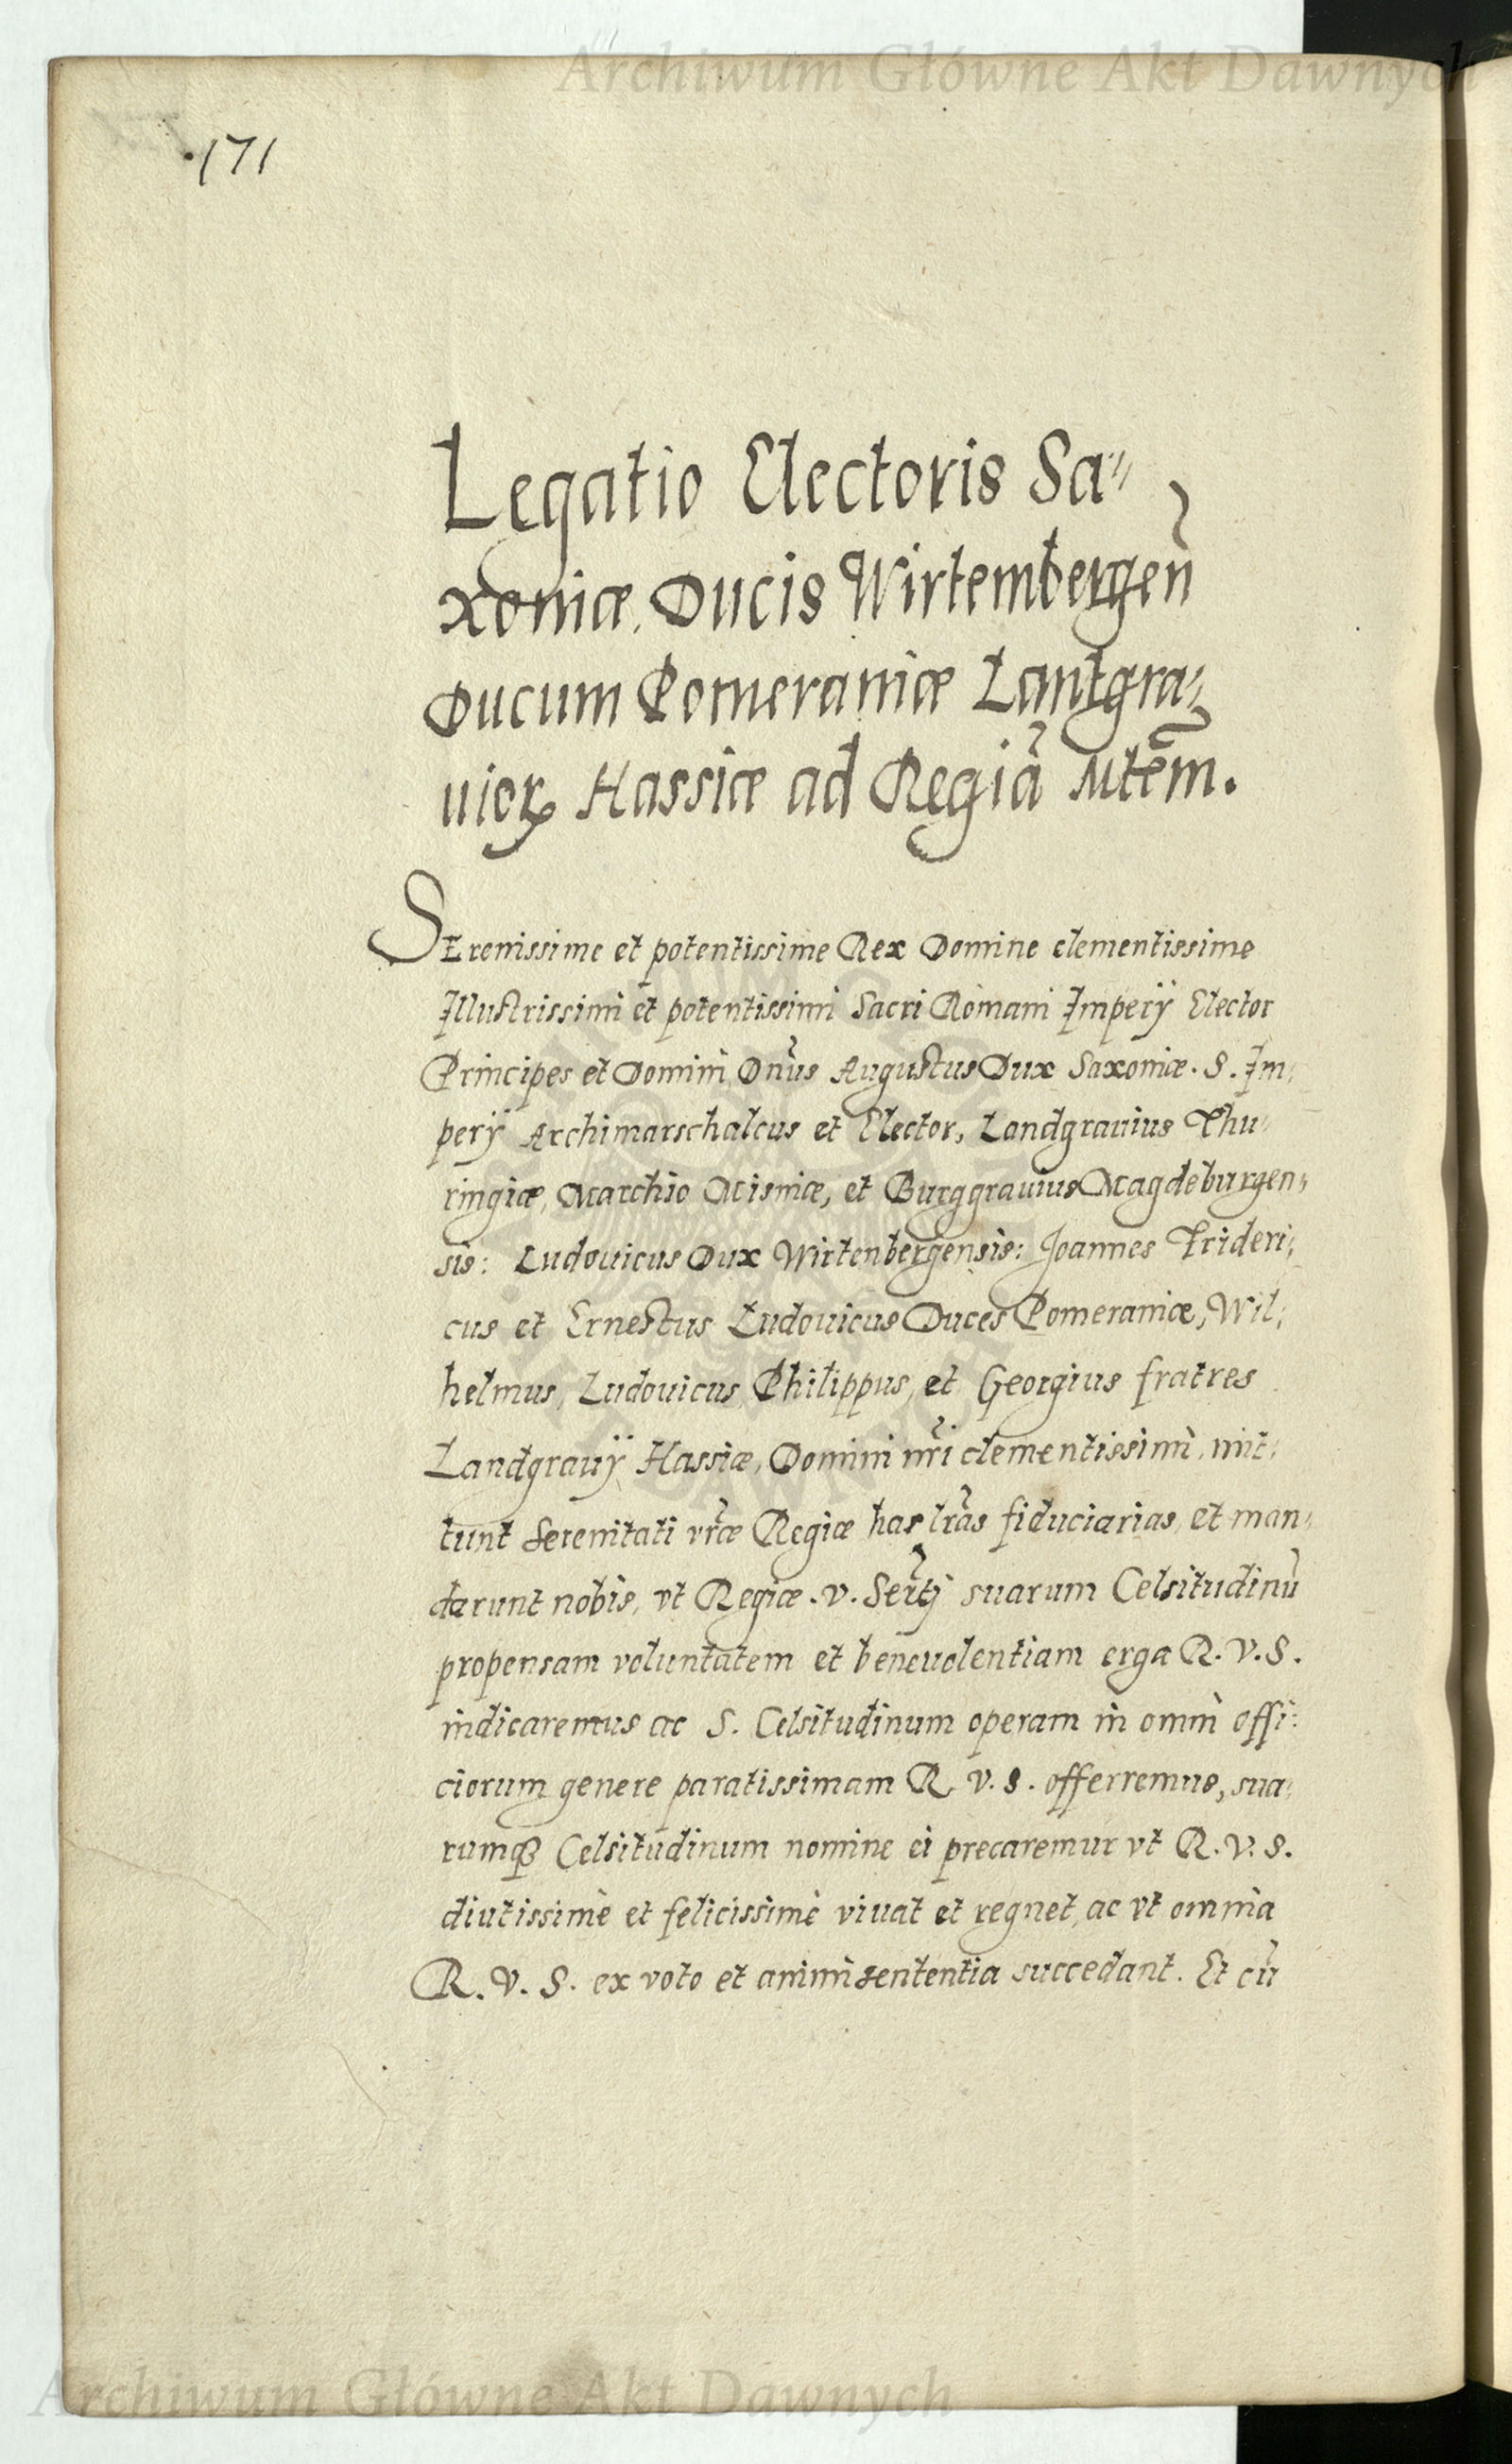 Archiwum Główne Akt Dawnych
171
Legatio Electoris Sa„
xoniæ, Ducis Wirtembergen̄
Ducum Pomeraniæ Lantgra„
uioꝝ Hassiæ ad Regiā Mtēm.
SErenissime et potentissime Rex Domine clementissime
Illustrissimi et potentissimi Sacri Romani Imperÿ Elector
Principes et Domini Dn̄us Augustus Dux Saxoniæ. S. Im„
perÿ Archimarschalcus et Elector, Landgrauius Thu„
ringiæ, Marchio Misniæ, et Burggrauius Magdeburgen„
sis: Ludouicus Dux Wirtenbergensis: Joannes Frideri„
cus et Ernestus Ludouicus Duces Pomeraniæ, Wil„
helmus, Ludouicus, Philippus, et Georgius fratres
Landgrauÿ Hassiæ, Domini nr̄i clementissimi, mit„
tunt Serenitati vr̄æ Regiæ has lr̄as fiduciarias, et man„
darunt nobis, vt Regiæ. v. Ser̄tj suarum Celsitudinū
propensam voluntatem et beneuolentiam erga R. V. S.
indicaremus ac S. Celsitudinum operam in omni offi„
ciorum genere paratissimam R. V. S. offerremus, sua„
rumqꝫ Celsitudinum nomine ei precaremur vt R. V. S.
diutissimè et felicissimè viuat et regnet, ac vt omnia
R. V. S. ex voto et animi sententia succedant. Et cū
Archiwum Główne Akt Dawnych